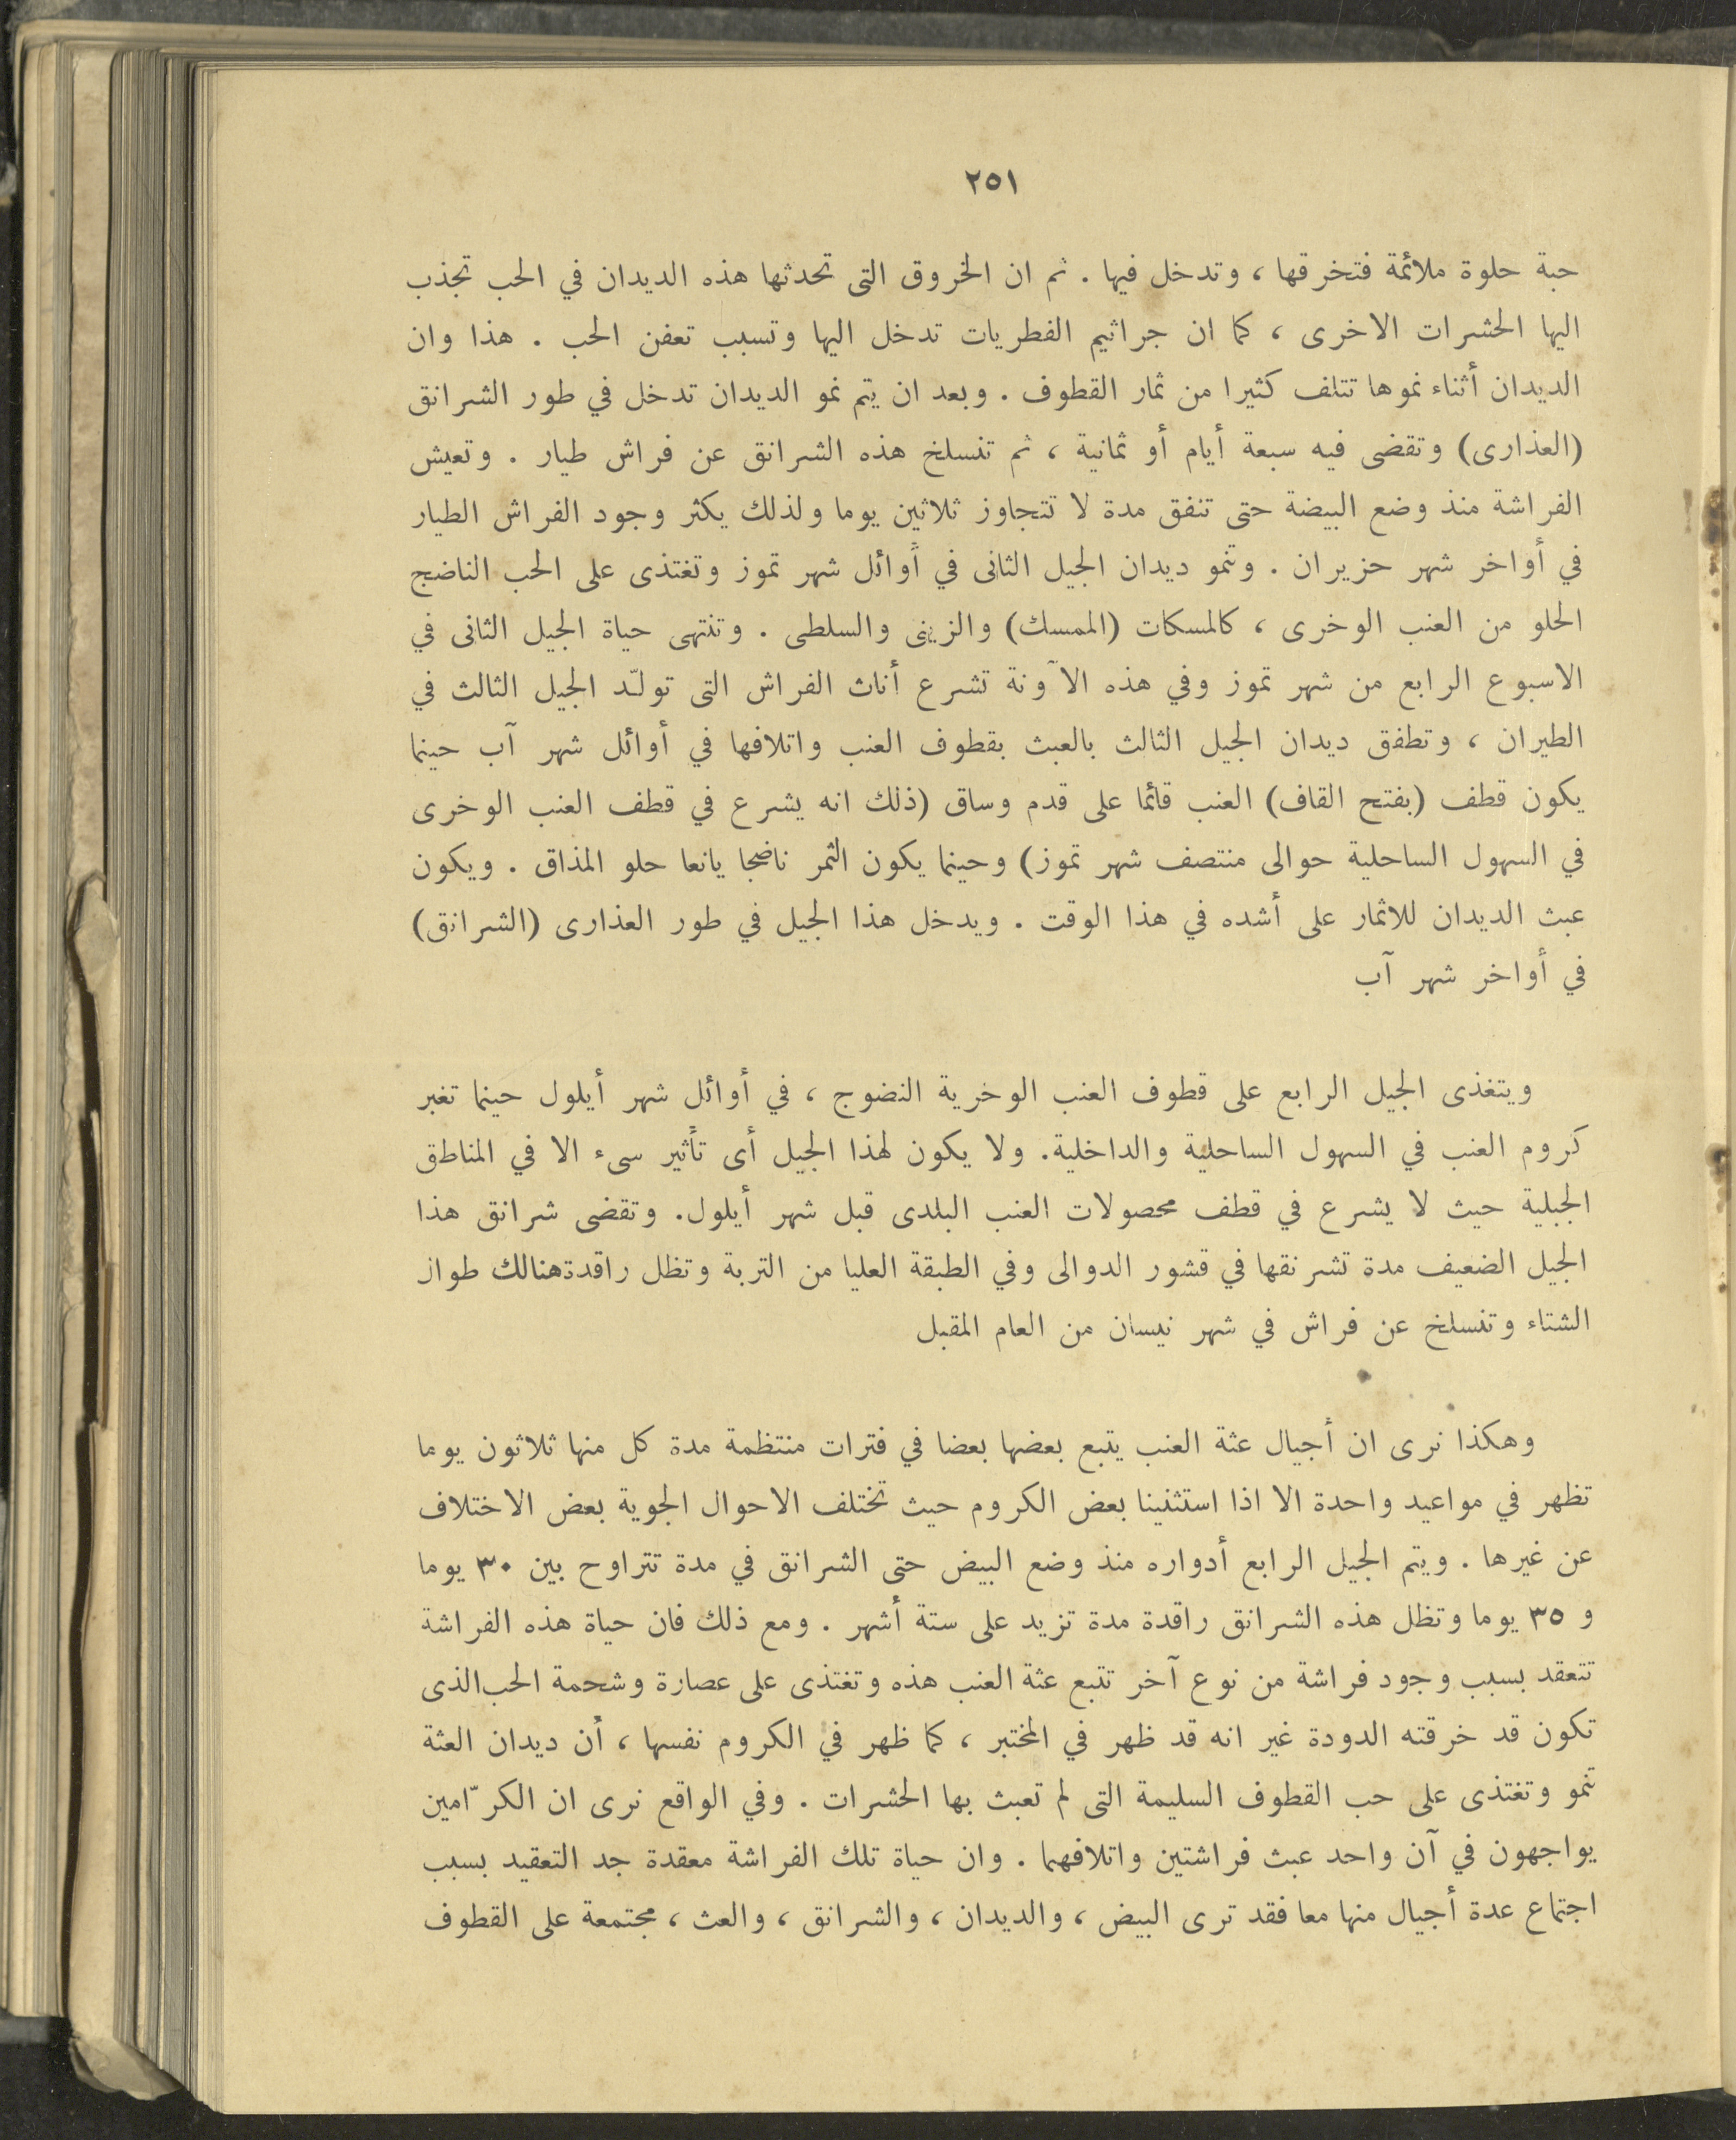 ٢٥١
حبة حلوة ملائمة فتخرقها ، وتدخل فيها . ثم ان الخروق التى تحدثها هذه الديدان في الحب تجذب
اليها الحشرات الاخرى ، كما ان جراثيم الفطريات تدخل اليها وتسبب تعفن الحب . هذا وان
الديدان أثناء نموها تتلف كثيرا من ثمار القطوف . وبعد ان يتم نمو الديدان تدخل في طور الشرانق
(العذارى) وتقضى فيه سبعة أيام أو ثمانية ، ثم تنسلخ هذه الشرانق عن فراش طيار . وتعيش
الفراشة منذ وضع البيضة حتى تنفق مدة لا تتجاوز ثلاثين يوما ولذلك يكثر وجود الفراش الطيار
في أواخر شهر حزيران . وتنمو ديدان الجيل الثانى في أوائل شهر تموز وتغتذى على الحب الناضج
الحلو من العنب الوخرى ، كالمسكات (الممسك) والزينى والسلطى . وتنتهى حياة الجيل الثانى في
الاسبوع الرابع من شهر تموز وفي هذه الآونة تشرع أناث الفراش التى تولّد الجيل الثالث في
الطيران ، وتطفق ديدان الجيل الثالث بالعبث بقطوف العنب واتلافها في أوائل شهر آب حينما
يكون قطف (بفتح القاف) العنب قائما على قدم وساق (ذلك انه يشرع في قطف العنب الوخرى
في السهول الساحلية حوالى منتصف شهر تموز) وحينما يكون الثمر ناضجا يانعا حلو المذاق . ويكون
عبث الديدان للاثمار على أشده في هذا الوقت . ويدخل هذا الجيل في طور العذارى (الشرانق)
في أواخر شهر آب
ويتغذى الجيل الرابع على قطوف العنب الوخرية النضوج ، في أوائل شهر أيلول حينما تغبر
كروم العنب في السهول الساحلية والداخلية. ولا يكون لهذا الجيل أى تأثير سىء الا في المناطق
الجبلية حيث لا يشرع في قطف محصولات العنب البلدى قبل شهر أيلول. وتقضى شرانق هذا
الجيل الضعيف مدة تشرنقها في قشور الدوالى وفي الطبقة العليا من التربة وتظل راقدة هنالك طوال
الشتاء وتنسلخ عن فراش في شهر نيسان من العام المقبل
وهكذا نرى ان أجيال عثة العنب يتبع بعضها بعضا في فترات منتظمة مدة كل منها ثلاثون يوما
تظهر في مواعيد واحدة الا اذا استثنينا بعض الكروم حيث تختلف الاحوال الجوية بعض الاختلاف
عن غيرها . ويتم الجيل الرابع أدواره منذ وضع البيض حتى الشرانق في مدة تتراوح بين ٣٠ يوما
و ٣٥ يوما وتظل هذه الشرانق راقدة مدة تزيد على ستة أشهر . ومع ذلك فان حياة هذه الفراشة
تتعقد بسبب وجود فراشة من نوع آخر تتبع عثة العنب هذه وتغتذى على عصارة وشحمة الحب الذى
تكون قد خرقته الدودة غير انه قد ظهر في المختبر ، كما ظهر في الكروم نفسها ، أن ديدان العثة
تنمو وتغتذى على حب القطوف السليمة التى لم تعبث بها الحشرات . وفي الواقع نرى ان الكرّامين
يواجهون في آن واحد عبث فراشتين واتلافهما . وان حياة تلك الفراشة معقدة جد التعقيد بسبب
اجتماع عدة أجيال منها معا فقد ترى البيض ، والديدان ، والشرانق ، والعث ، مجتمعة على القطوف